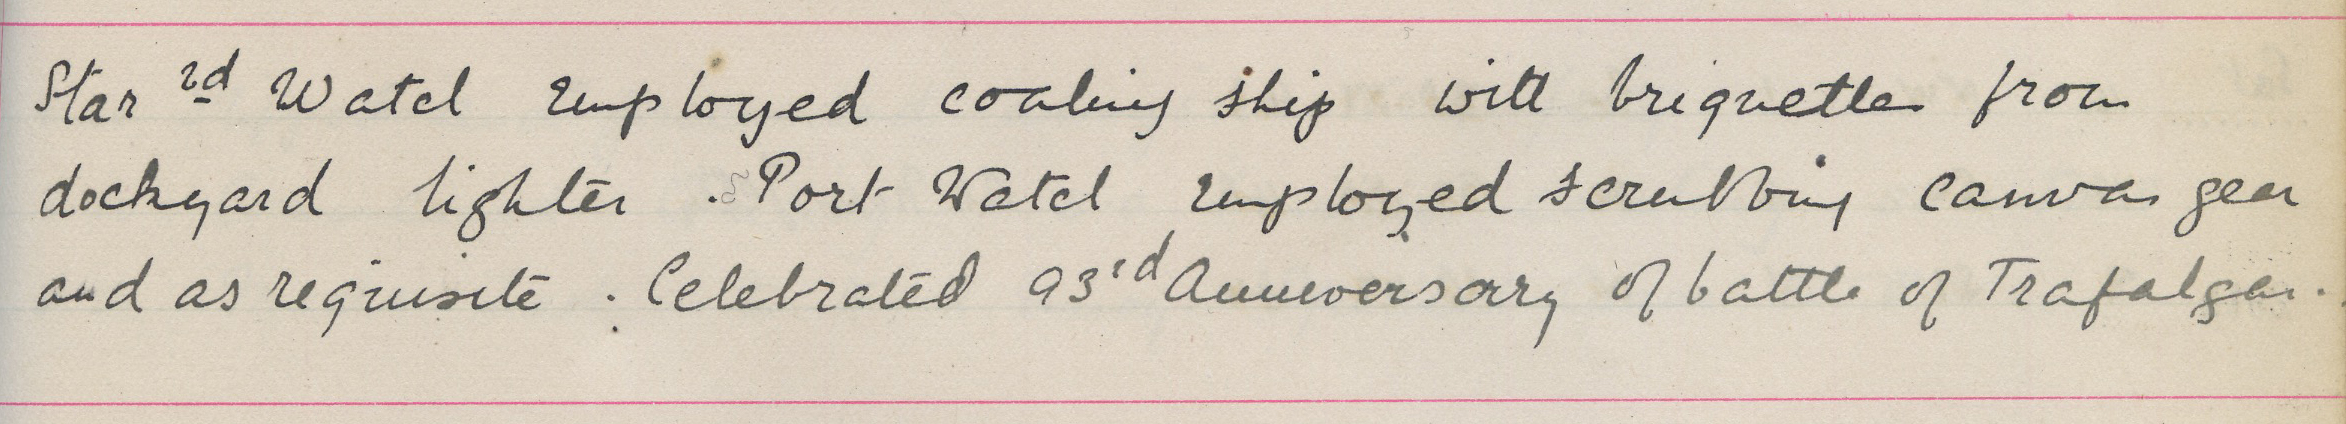 Star rd Watch employed coaling ship with briquettes from
dockyard lighter . Port Watch employed scrubbing canvas gear
and as requisite . Celebrated 93rd Anniversary of battle of Trafalgar.